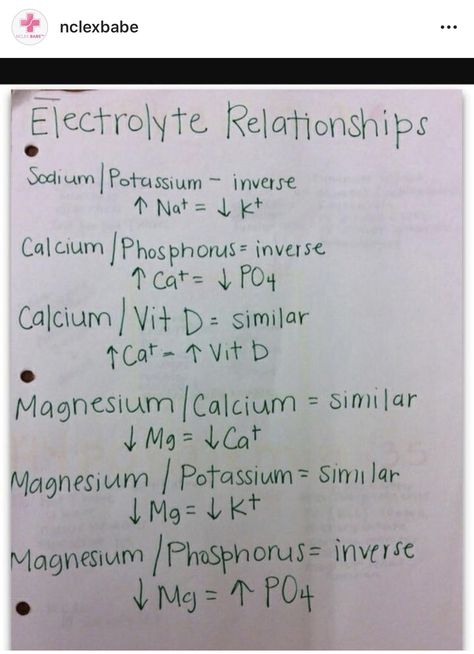 nclexbabe
NCLEX BABE
Electrolyte Relationships
Sodium/Potassium - inverse
↑ Na+ = ↓ K+
Calcium/Phosphorus = inverse
↑ Ca+ = ↓ PO4
Calcium/Vit D = similar
↑ Ca+ - ↑ Vit D
Magnesium/Calcium = similar
↓ Mg = ↓ Ca+
Magnesium/Potassium = similar
↓ Mg = ↓ K+
Magnesium/Phosphorus = inverse
↓ Mg = ↑ PO4